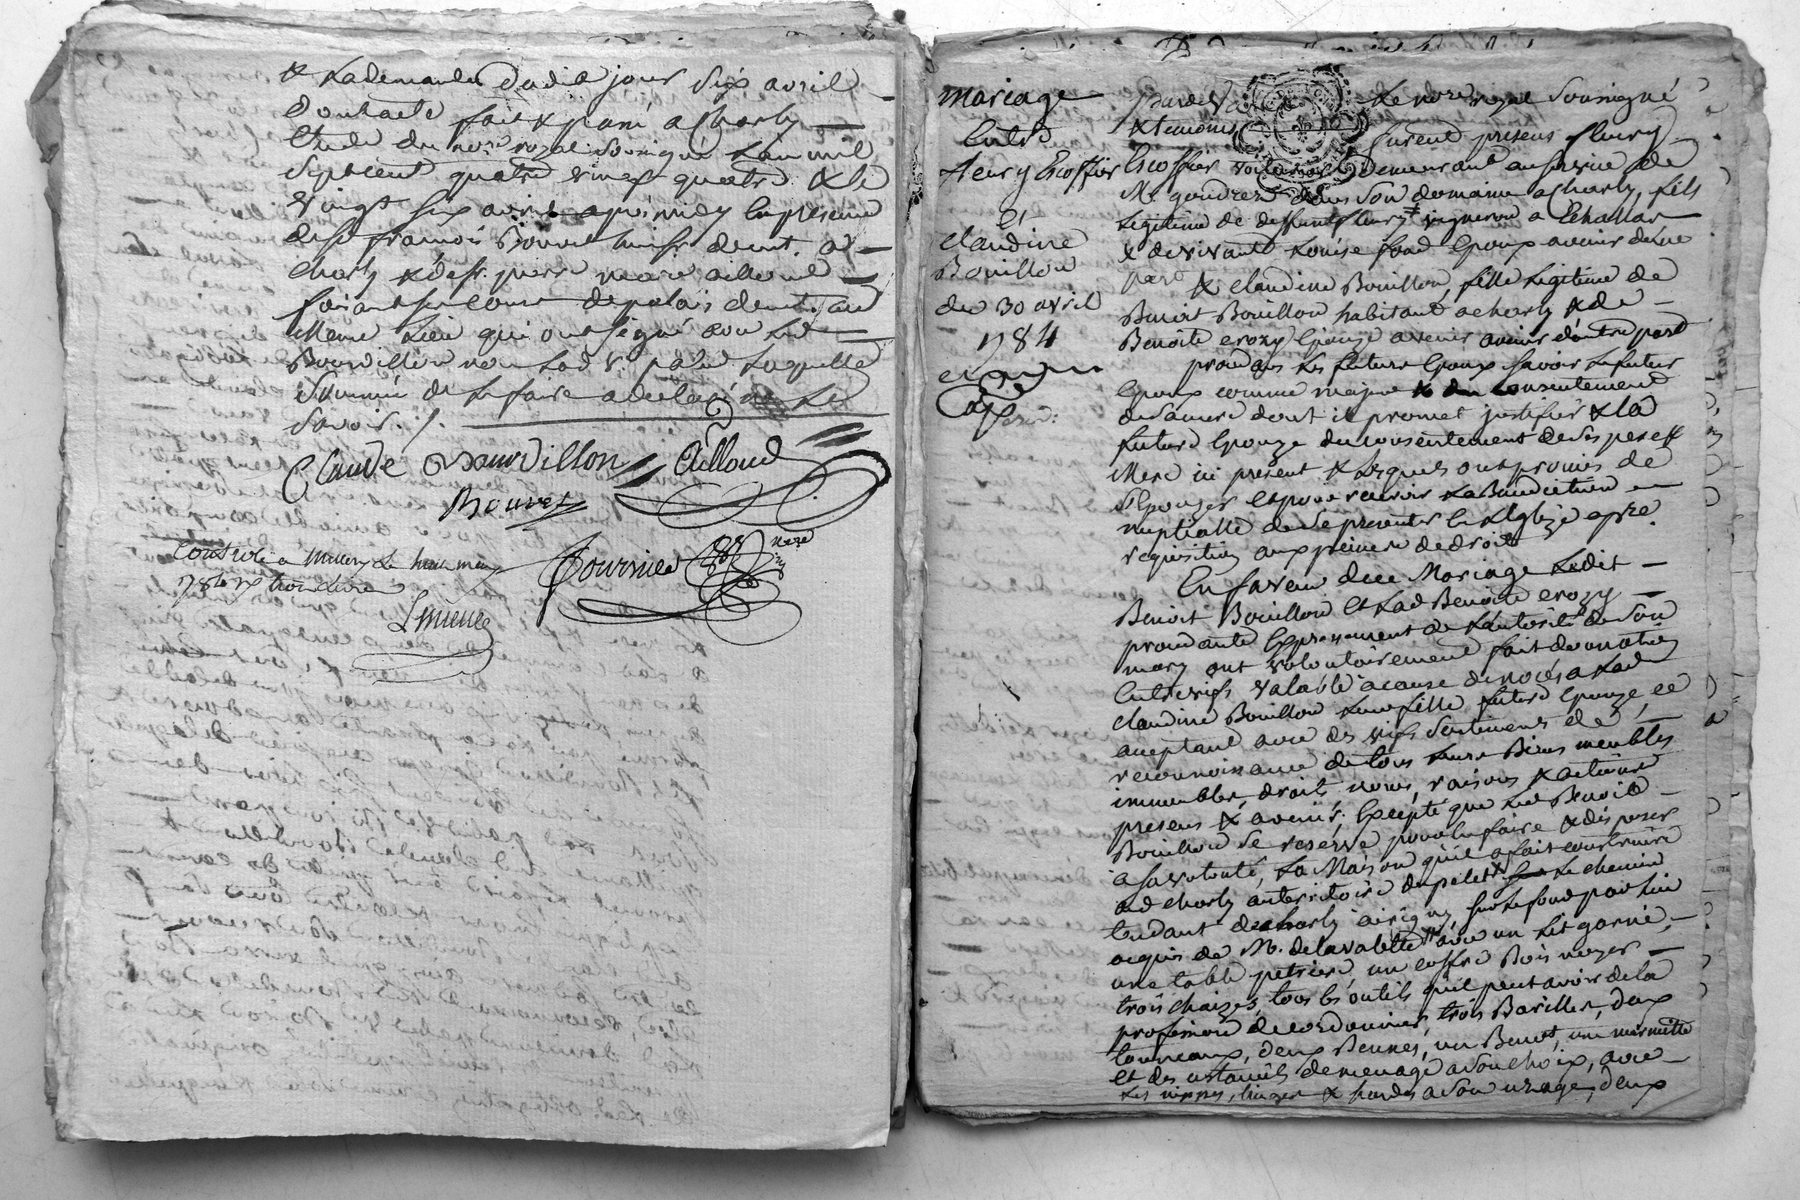 & Lademande dudit jour six avril
dont acte fait & passé a Charly
Etude du no.re royal soussigné L'an mil
Septcent quatre vingt quatre & le
vingt six avril après mey En presence
de Sr francois Bouvet huissr demt. a
Charly & de sr. pierre
demt. au
Meme Lieu qui ont signé avec Led
Bourdillon non Lad Ve. Laquelle
Sommée de Le faire a declaré ne Le
Savoir ./.
Claude Bourdillon Aillaud
Bouvet
Controlé a Millery Le huit may
1784
Fournier
mariage
Entre
fleury Escoffier
&
claudine
Bouillon
du 30 avril
1784
Exp
pardevant Le nore royal Soussigné
& temoins furent presens fleury
Escoffier demeurant au service de
Mr. dans son domaine a Charly, fils
Legitime de deffunt fleury vigneron a Echallas
& de vivante Louise fond Epoux avenir d'une
part & claudine Bouillon, fille Legitime de
Benoit Bouillon habitant a charly & de
Benoite crozy Epouze avenir d'autre part
procedans Les futurs Epoux Savoir Le futur
Epoux comme majeur & du consentement
de sa mere dont il promet justifier & La
future Epouze du consentement de Ses pere &
Mere ici presents & Lesquels ont promis de
S'Epouzer et pour recevoir La Benediction
nuptialle de Se presenter En L'Eglize a pre.
requisition aux peines de droit
En faveur dece Mariage Ledit
Benoit Bouillon et Lad Benoite crozy
procedante Expressement de L'autorité de Son
mary ont volontairement fait donnation
Entrevifs valable acause de noces a Lad
claudine Bouillon Leur fille, future Epouze, ce
acceptant avec des vifs Sentiments de
reconnoissance de tous Leurs Biens meubles
immeubles, droits, noms, raisons & actions
presens & avenir; Excepté que Led Benoit
Bouillon Se reserve pour En faire & disposer
a Sa volonté, La Maison qu'il a fait construire
aud charly au territoire du pelet Le chemin
tendant de charly a irigny, Sur Le fond par Lui
acquis de Mr. delavalette avec un Lit garni,
une table petriere un coffre Bois noyer
trois chaizes, tous les outils qu'il peut avoir de la
profession de cordonnier, trois Barilles, deux
tonneaux, deux Bennes, un Benot, une marmitte
et des ustancils demenage a Son choix, avec
Les nippes, linges & hardes a Son uzage, deux